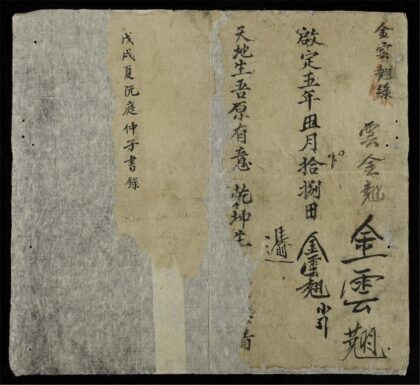 金雲翹錄
雲金翹
金雲翹
啟定五年丑月拾捌日
金雲翹小引
天地生吾原有意乾坤生
戊戌夏阮庭仲子書錄